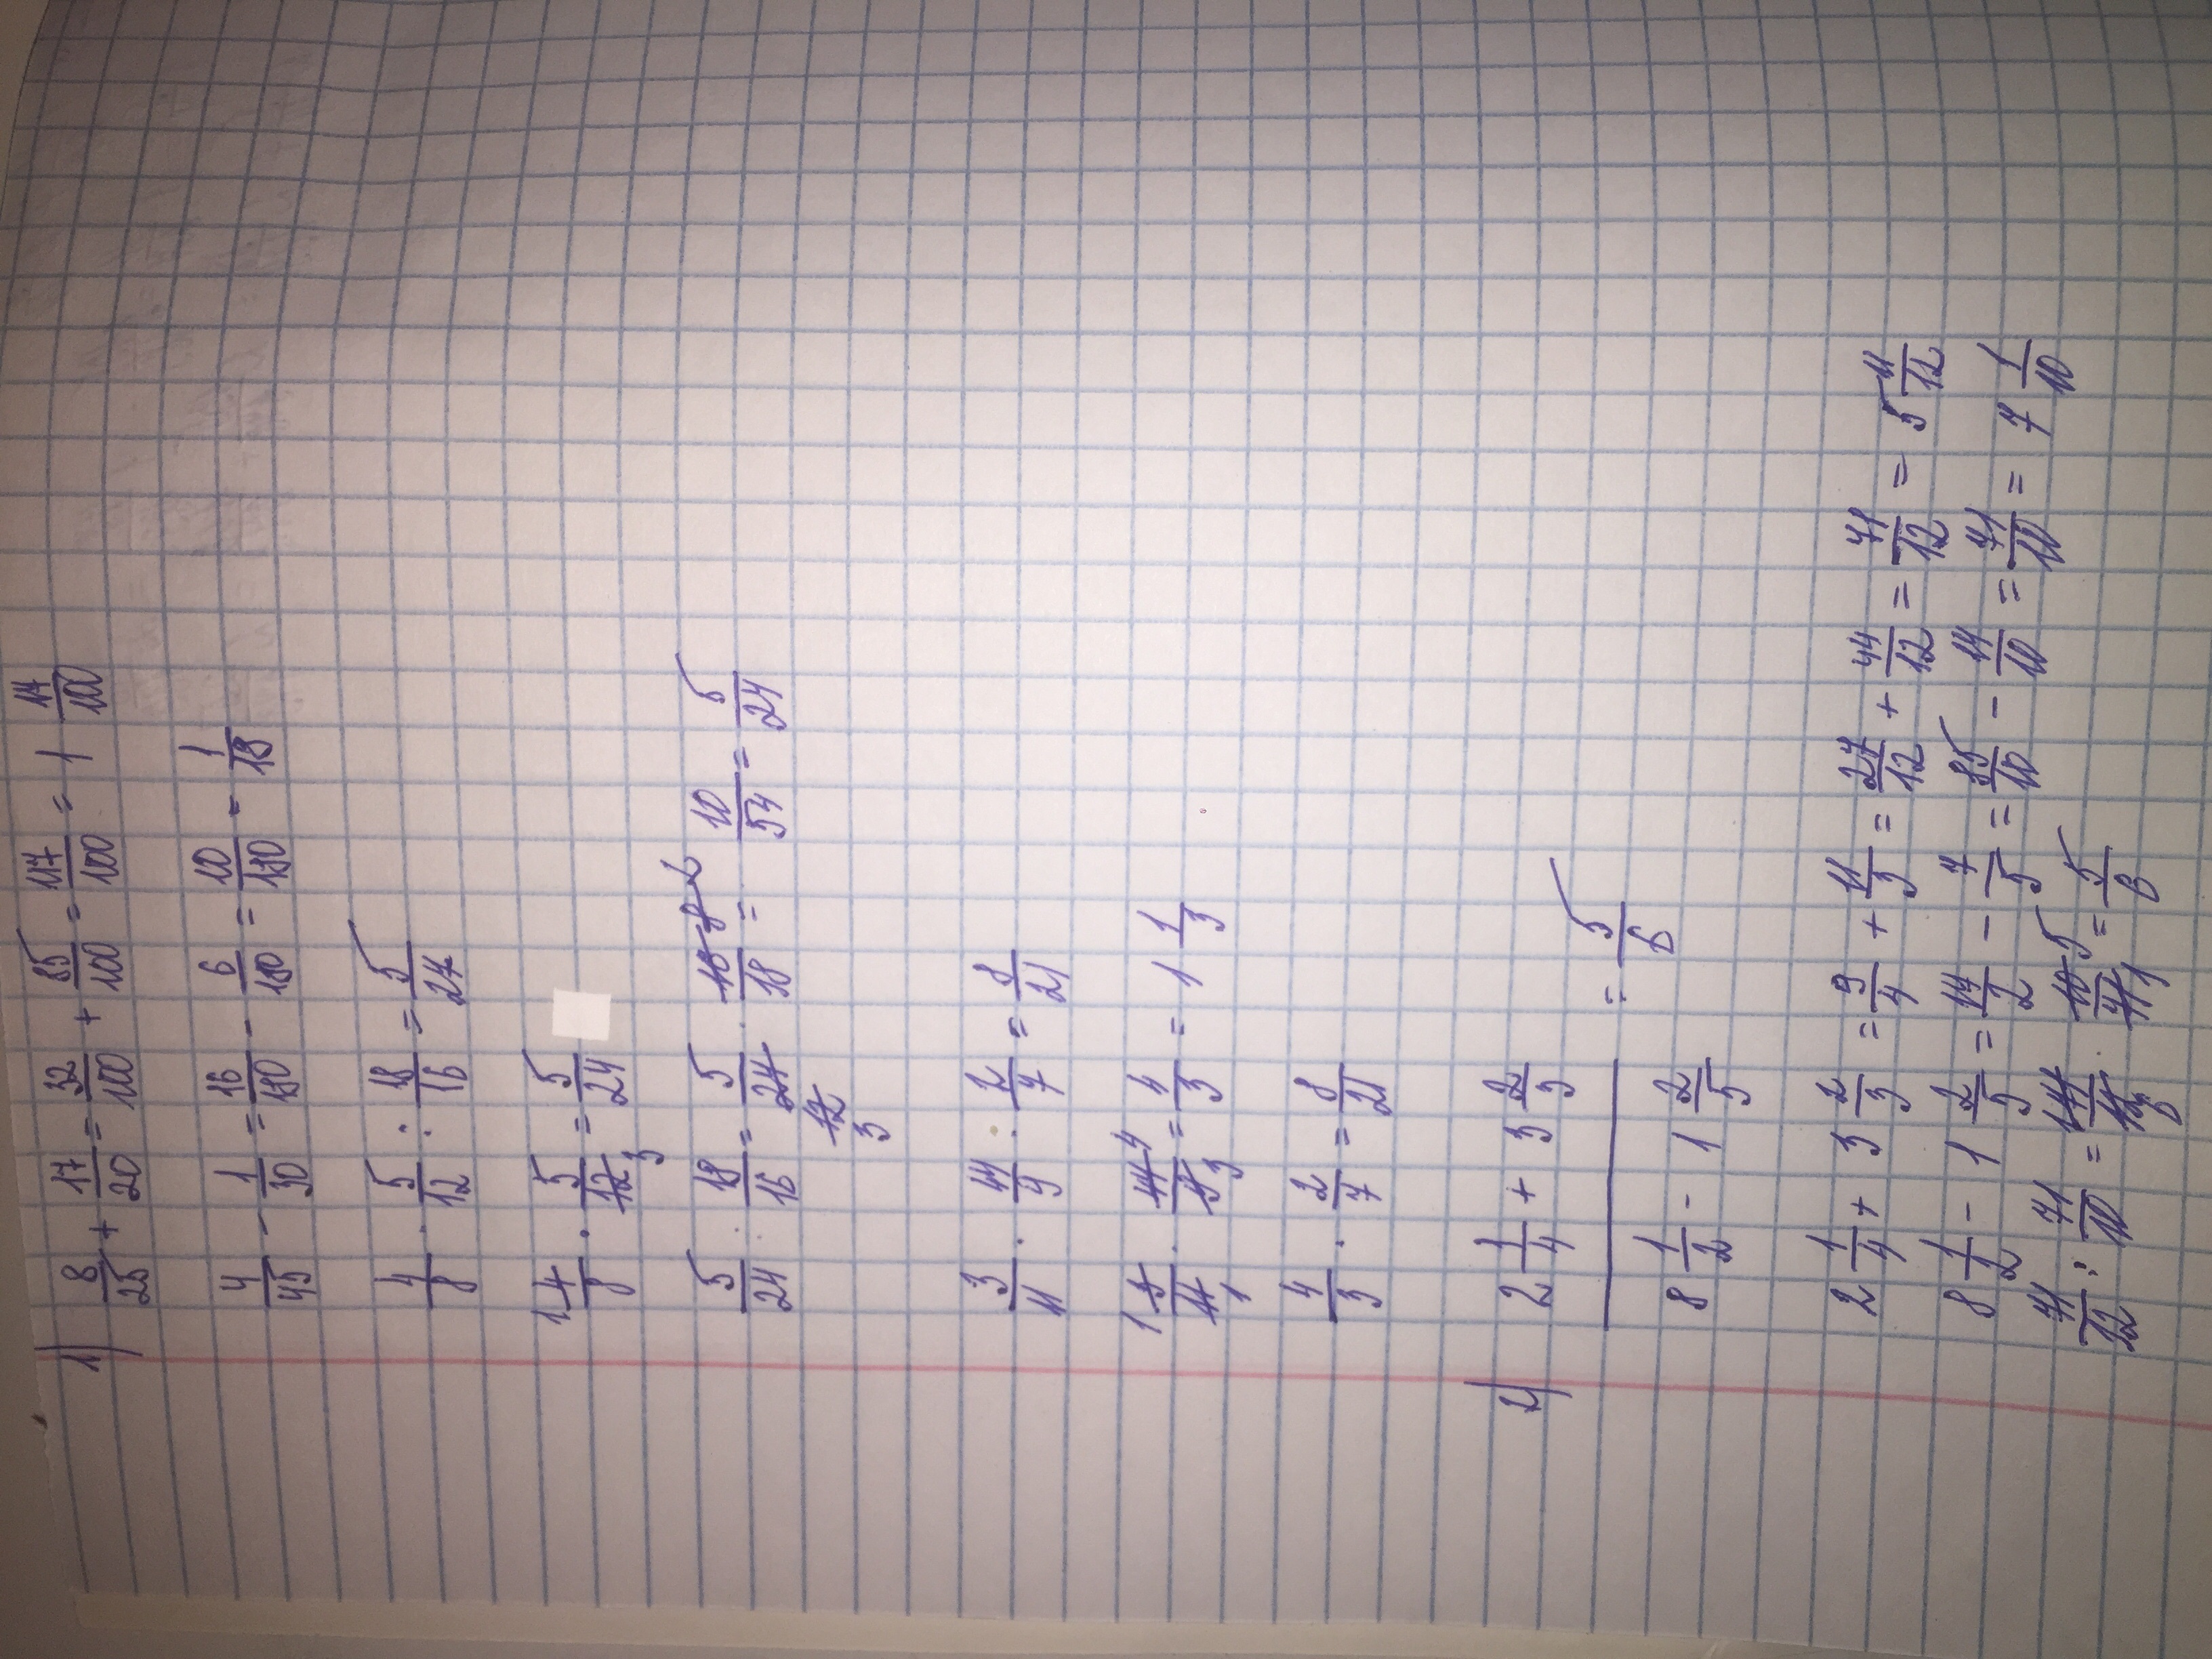 1) 8/25 + 17/20 = 32/100 + 85/100 = 117/100 = 1 17/100
4/45 - 1/30 = 16/180 - 6/180 = 10/180 = 1/18
4/8 · 5/12 : 18/16 = 5/24
1 4/8 · 5/12 3 = 5/24
5/24 · 18/16 = 5/24 · 16 8 2/18 = 10/54 = 5/24
12
3
3/11 · 44/9 · 2/7 = 8/21
1 3/11 1 · 44 4/9 3 = 4/3 = 1 1/3
4/3 · 2/7 = 8/21
2) 2 1/4 + 3 2/3
= 5/6
8 1/2 - 1 2/5
2 1/4 + 3 2/3 = 9/4 + 11/3 = 27/12 + 44/12 = 71/12 = 5 11/12
8 1/2 - 1 2/5 = 17/2 - 7/5 = 85/10 - 14/10 = 71/10 = 7 1/10
71/12 : 71/10 = 1 71/12 6 · 10 5/71 1 = 5/6